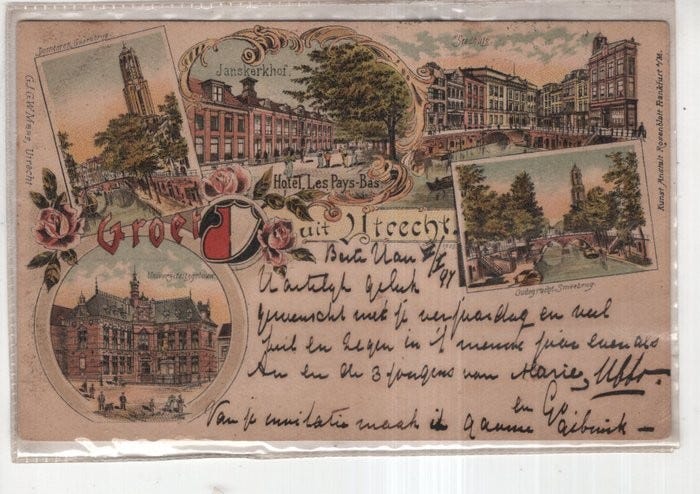 Domtoren Gaardbrug.
Janskerkhof.
Stadhuis
G.J.G.W. Mass, Utrecht
Hotel Les Pays-Bas
Kunst Anstalt Rosenblatt Frankfurt a/M.
Groet uit Utrecht.
Universiteitsgebouw
Oudegracht-Smeebrug.
Beste
97
Hartelijk geluk
gewenscht met je verjaardag en veel
heil en zegen in 't nieuwe jaar evenals
An en de 3 jongens van Marie,
en
Van je invitatie maak ik gaarne gebruik